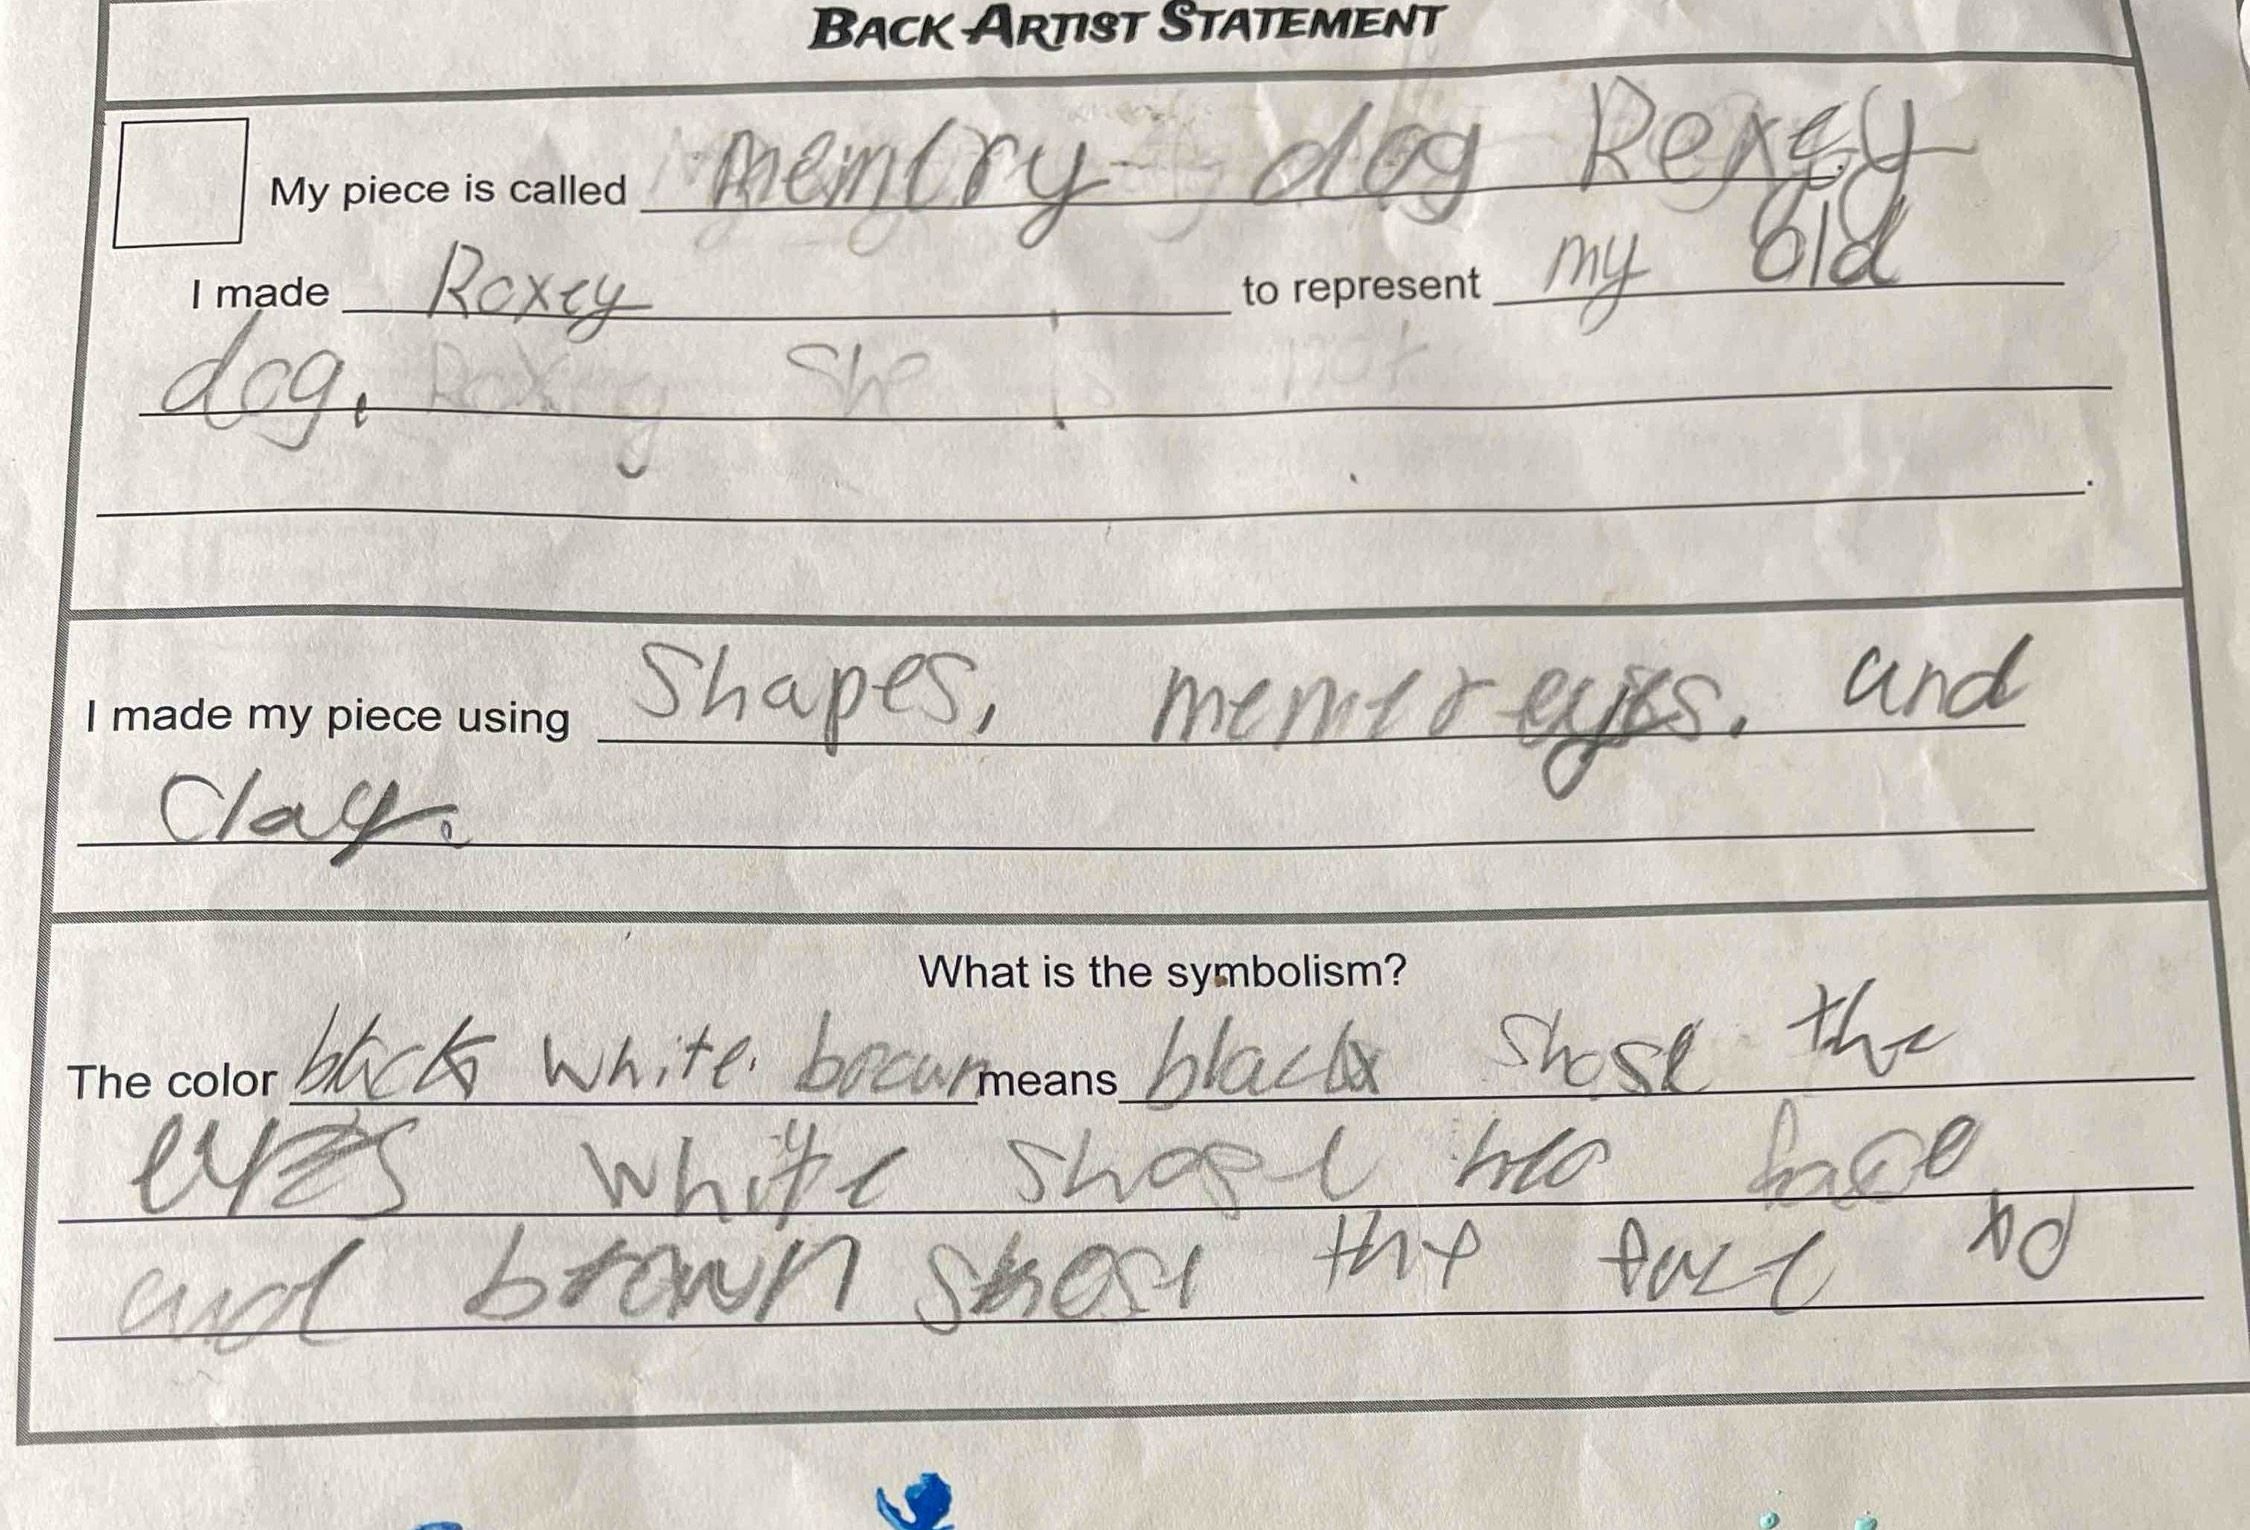 BACK ARTIST STATEMENT
My piece is called memory dog Roxey
I made Roxey to represent my old
dog. Roxey She is not
I made my piece using Shapes, memereyes, and
Clay.
What is the symbolism?
The color black white means black shose the
eyes white shose
and brown shose the